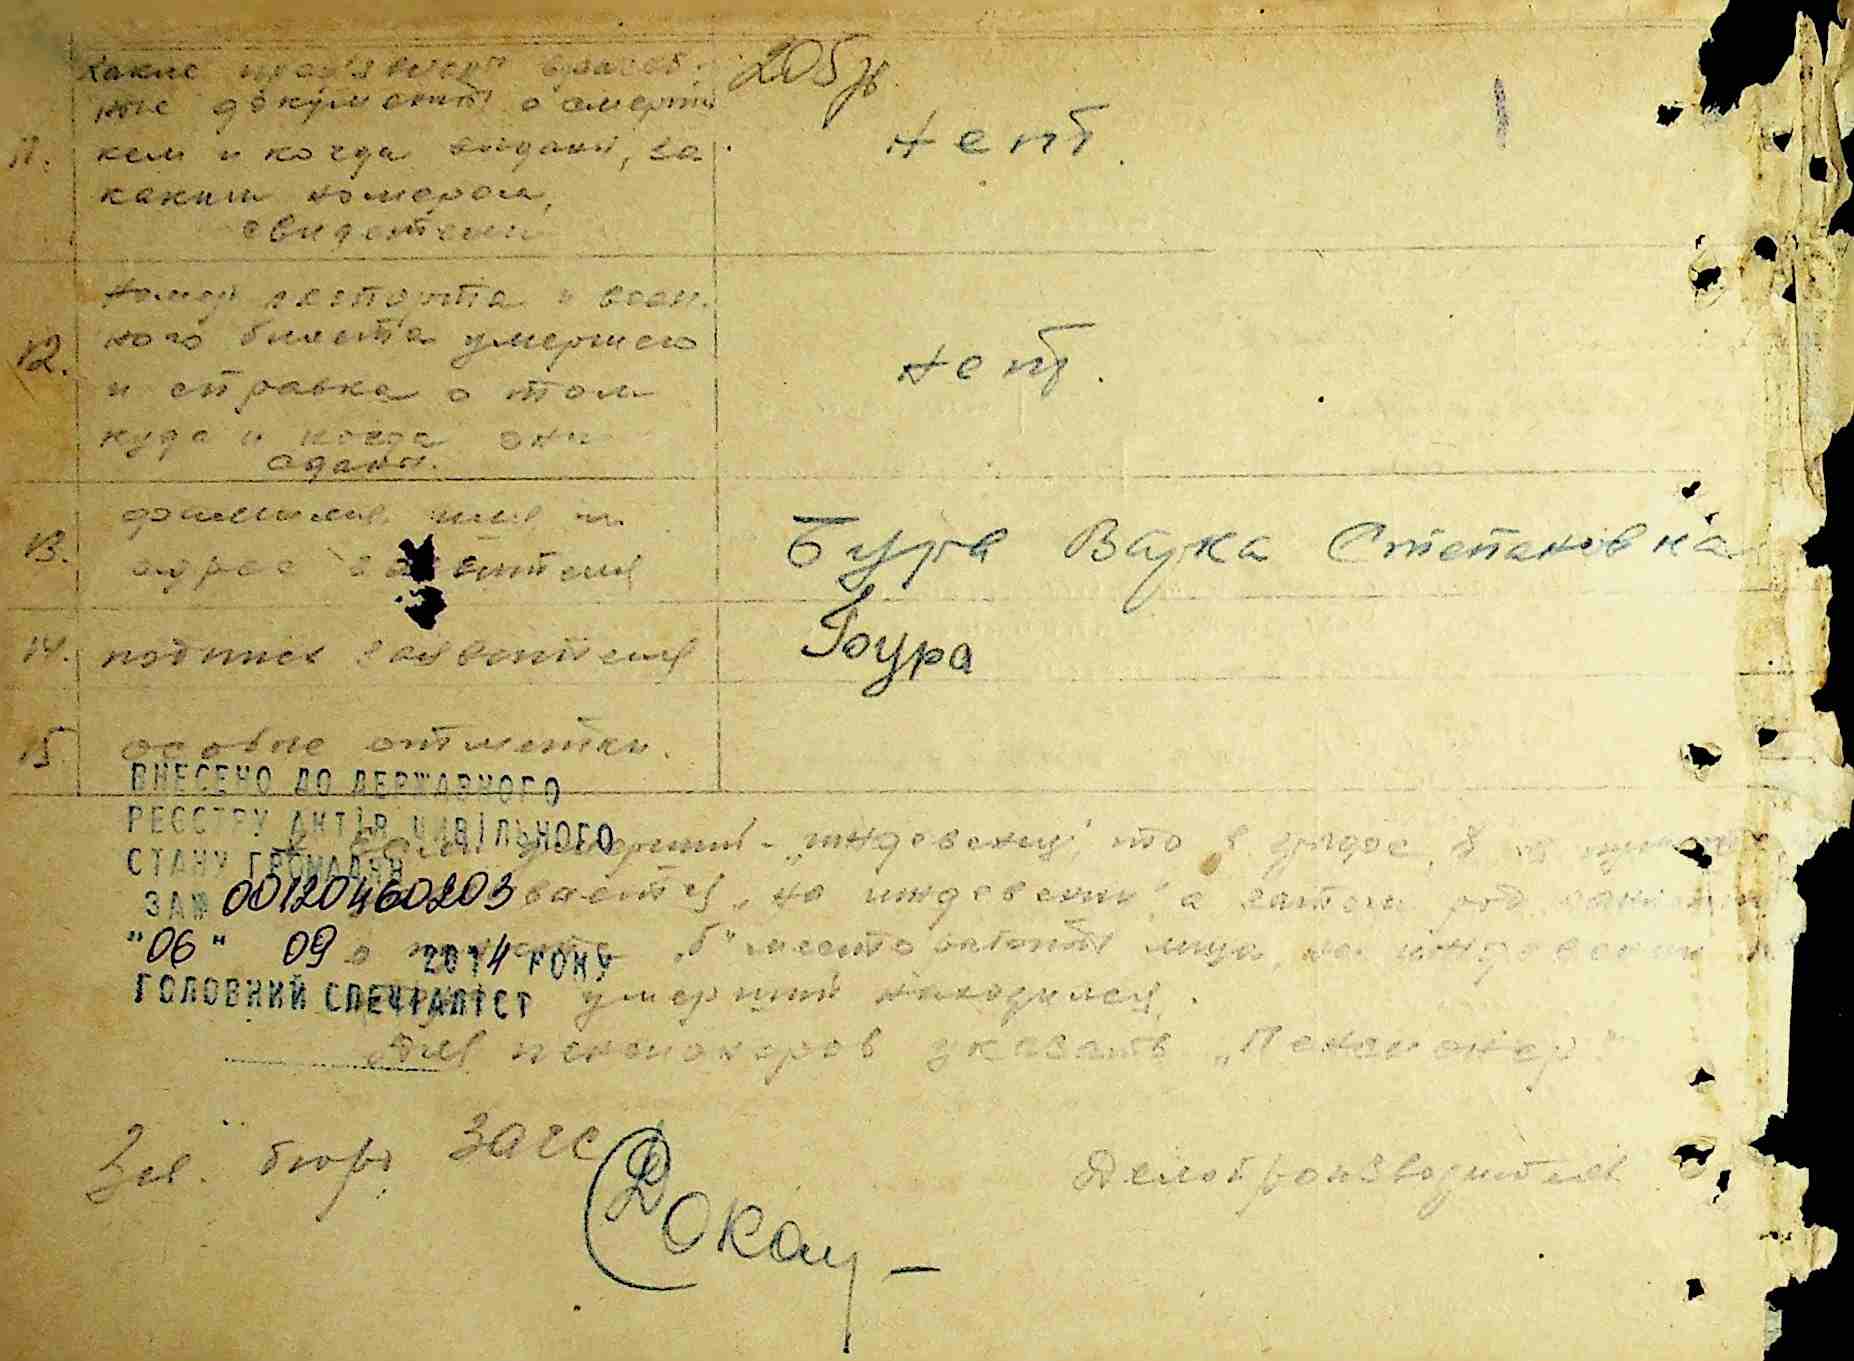 205 зв.
Какие пред'явлены врачеб-
ные документы о смерти
11. кем и когда выданы, за
каким номером,
свидетели
нет.
Номер паспорта и воен-
ного билета умершего
12. и справка о том
куда и когда они
сданы.
нет.
фамилия имя и
13. адрес заявителя
Бура Степановна
14. подпись заявителя
Бура
15 особые отметки.
ВНЕСЕНО ДО ДЕРЖАВНОГО
РЕЄСТРУ АКТІВ ЦИВІЛЬНОГО
СТАНУ ГРОМАДЯН
ЗА № 00120460203
"06" 09 2014 РОКУ
ГОЛОВНИЙ СПЕЦІАЛІСТ
умерший - "иждевенец", то в графе 8 в
вается "на иждевении", а затем
"б" место работы лица, на иждевении
умерший находился.
Для пенсионеров указать "Пенсионер"
Зав. бюро Загс
Делопроизводитель